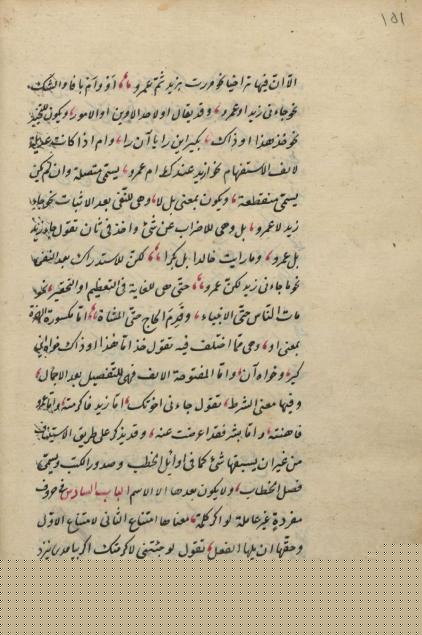 ١٥١
الا ان فيها تراخيا نحو مررت بزيد ثم عمرو او واما
نحو جاءنى زيد او عمرو وقد يقال او لاحد الامرين او الامور ويكون للتخيير
نحو خذ هذا او ذاك بكير اين را يا آن را وام اذا كانت عديلة
لالف الاستفهام نحو ازيد عندك ام عمرو يسمى متصلة وان لم يكن
يسمى منقطعة ويكون بمعنى بل لا وهى للنفى بعد الاثبات نحو جاءنى
زيد لا عمرو بل وهى للاضراب عن شئ واخذ فى ثان تقول جاءنى زيد
بل عمرو وما رايت خالدا بل بكرا لكن للاستدراك بعد النفى
نحو ما جاءنى زيد لكن عمرو حتى هى للغاية فى التعظيم او التحقير نحو
مات الناس حتى الانبياء وقدم الحاج حتى المشاة اما مكسورة الهمزة
بمعنى او وهى مما اختلف فيه تقول خذ اما هذا او ذاك خواه اين
كير وخواه آن واما المفتوحة الالف فهى للتفصيل بعد الاجمال
وفيها معنى الشرط تقول جاءنى اخوتك اما زيد فاكرمته واما عمرو
فاهنته واما بشر فقد اعرضت عنه وقد يذكر على طريق الاستيناف
من غير ان يسبقها شئ كما فى اوائل الخطب وصدور الكتب ويسمى
فصل الخطاب ولا يكون بعدها الا الاسم الباب السادس فى حروف
مفردة غير عاملة لو اكر كلمة معناها امتناع الثانى لامتناع الاول
وحقها ان يليها الفعل تقول لو جئتنى لاكرمتك اكر بيامدى نزد